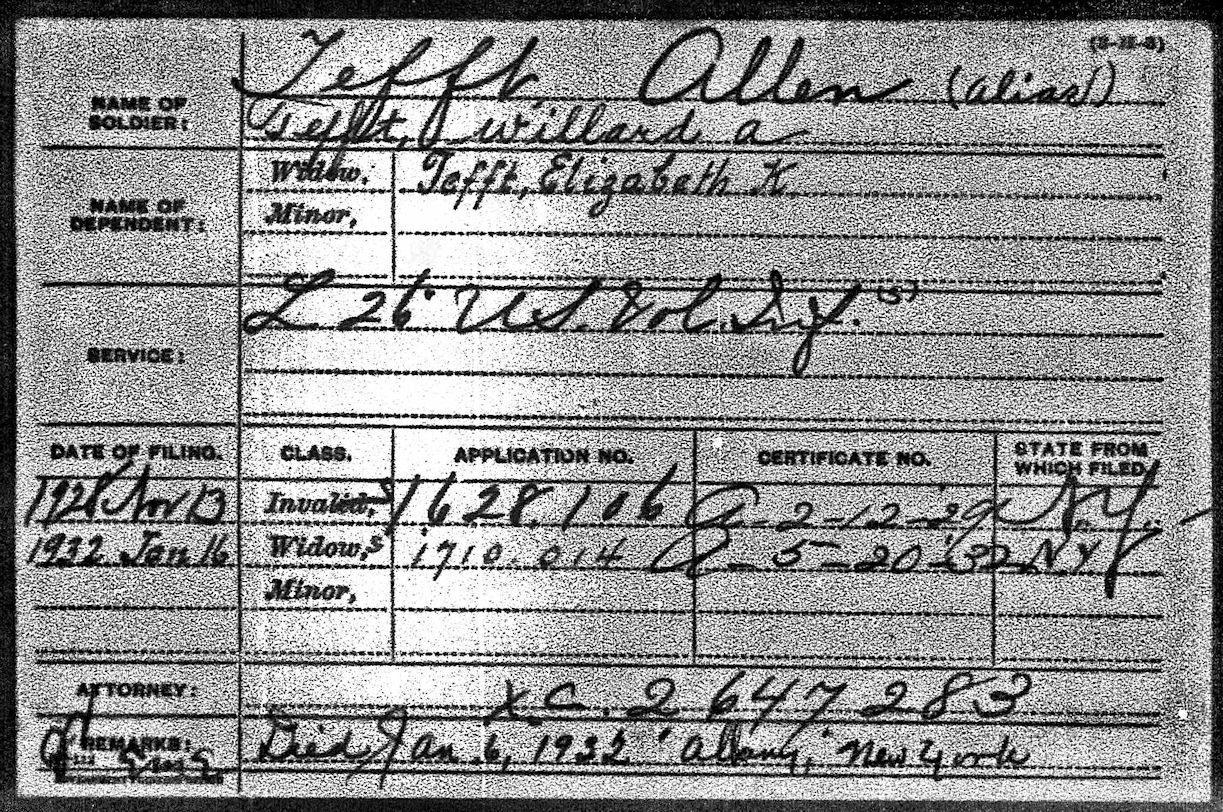 (3-12-3)
Tefft Allen (alias)
NAME OF SOLDIER:
Tefft, Willard A
NAME OF DEPENDENT:
Widow, Tefft, Elizabeth K
Minor,
SERVICE:
L 26 U.S. Vol. Inf. (S)
DATE OF FILING. CLASS. APPLICATION NO. CERTIFICATE NO. STATE FROM WHICH FILED
1928 Nov 13 Invalid, S 1628.106 A-2-12-29 N.Y.
1932 Jan 16 Widow, S 1710.014 A-5-20-32 NY
Minor,
ATTORNEY: XC. 2 647 283
REMARKS: Died Jan. 6, 1932 Albany, New York